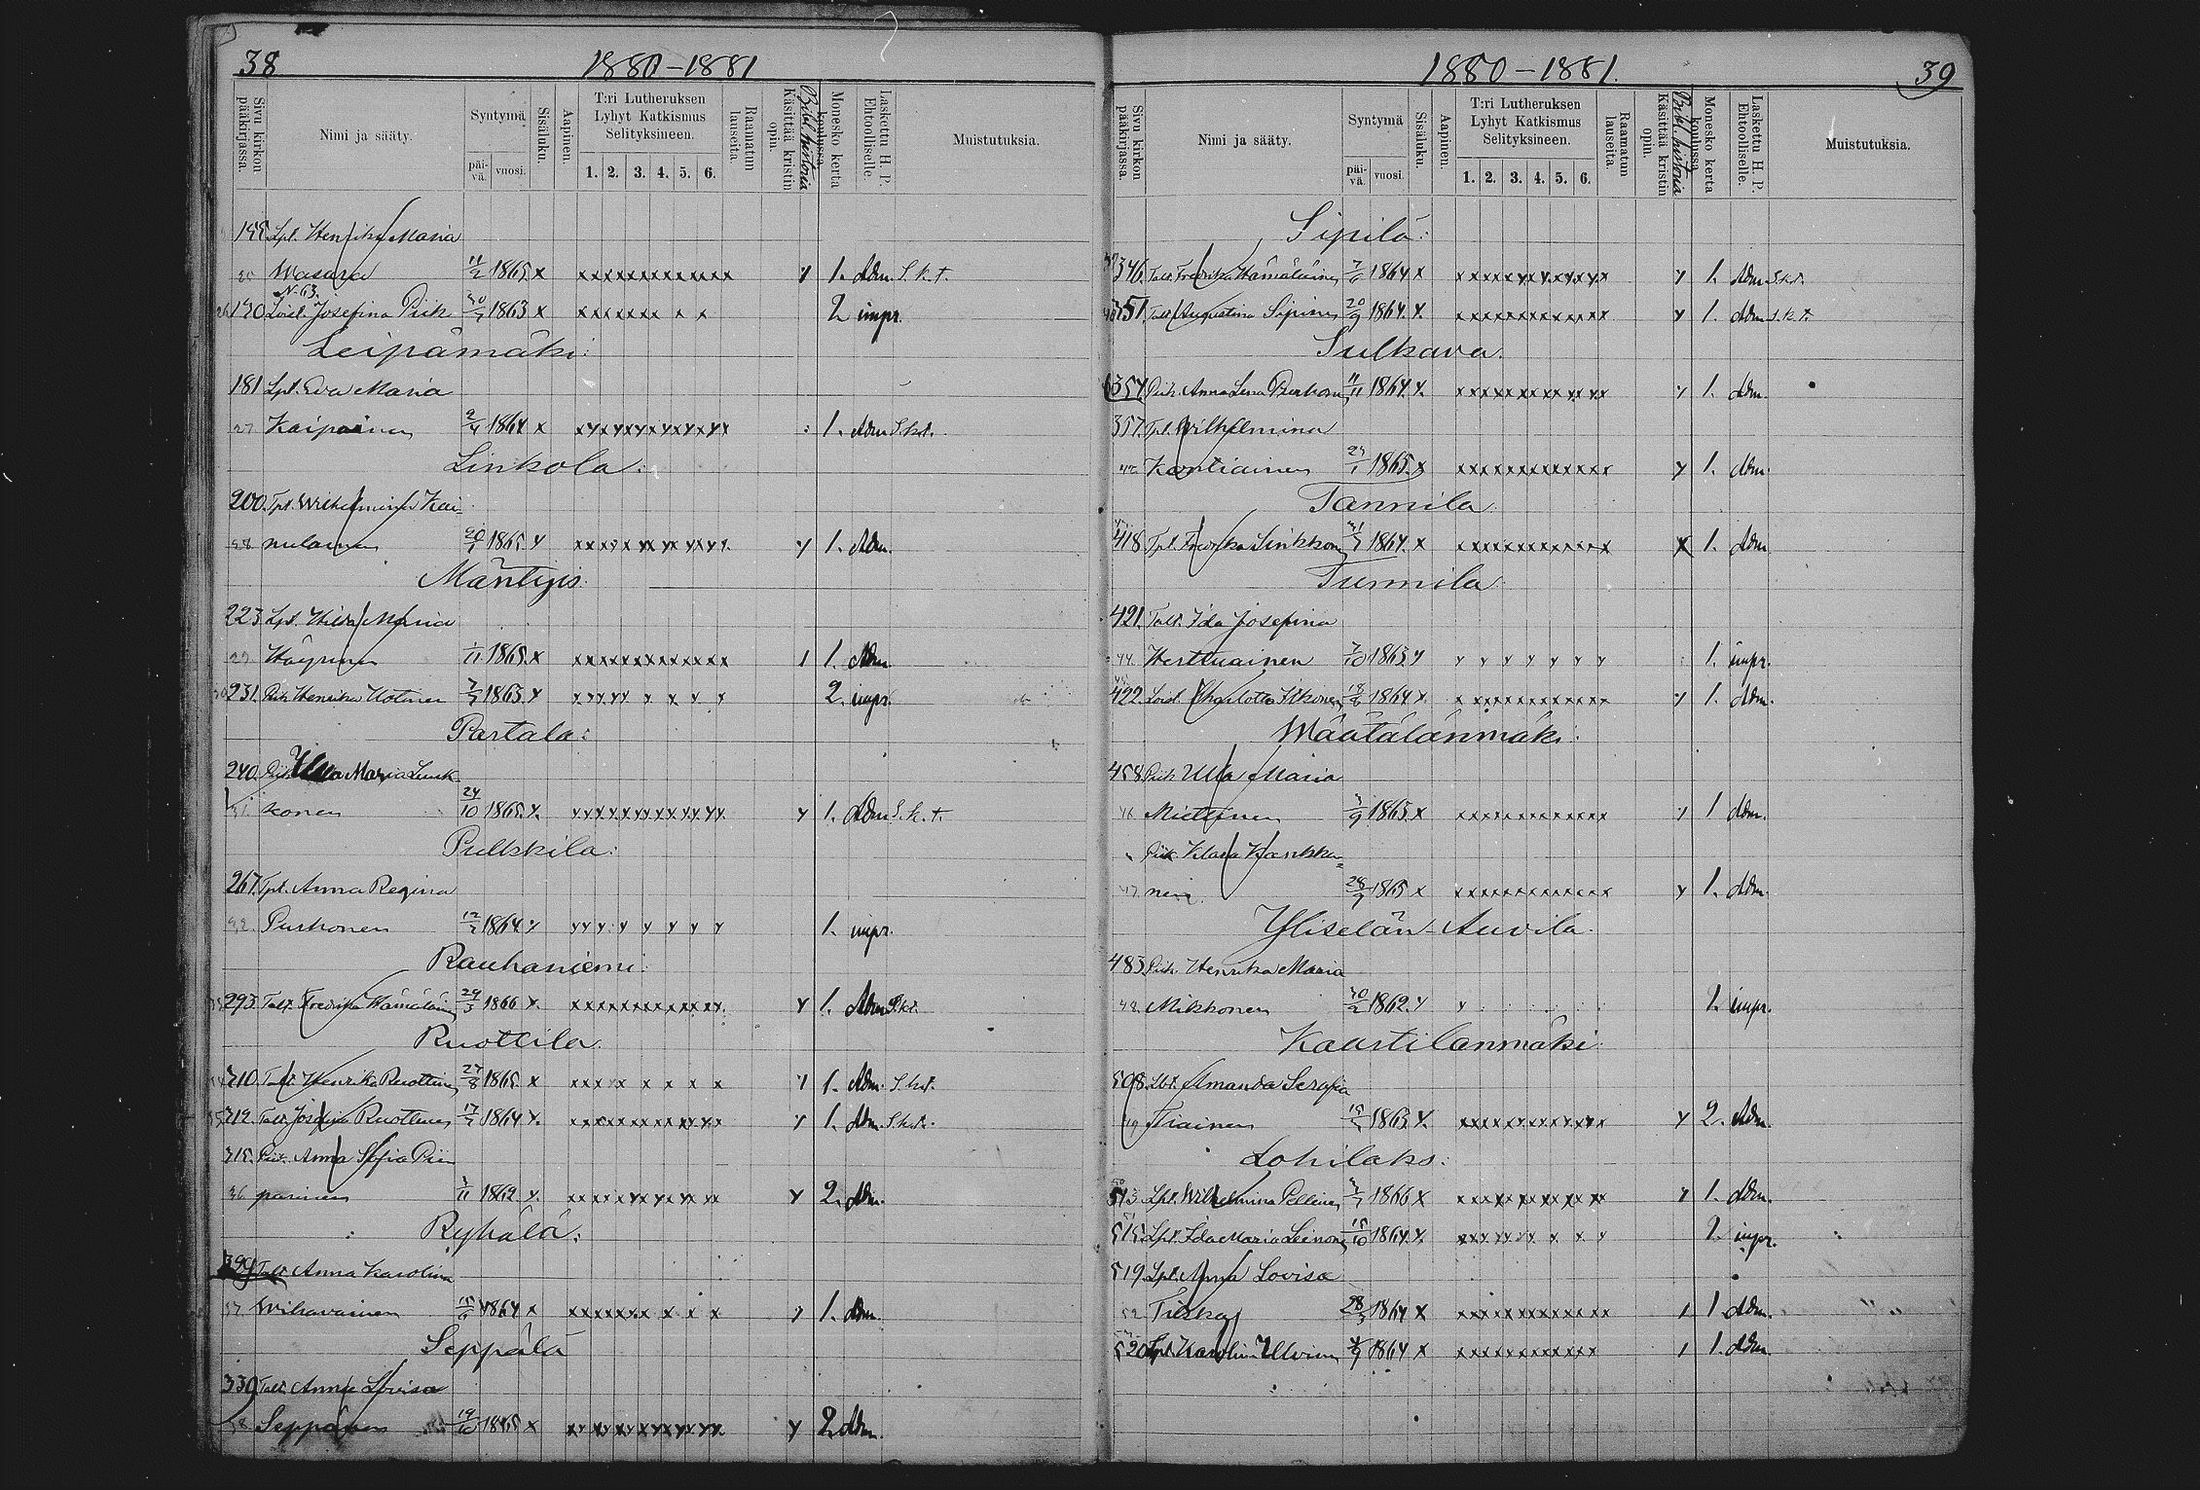 38
1880-1881
Sivu kirkon pääkirjassa.
Nimi ja sääty.
Syntymä
päi-vä.
vuosi.
Sisäluku.
Aapinen.
T:ri Lutheruksen Lyhyt Katkismus Selityksineen.
1. 2. 3. 4. 5. 6.
Raamatun lauseita.
Käsittää kristin opin.
Bibl. historia
Monesko kerta koulussa.
Laskettu H. P. Ehtoolliselle.
Muistutuksia.
Lpl. Henrika Maria
Wasara 11/2 1865 x xxxxxxxxxxxx y 1. Adm. S.k.t.
N. 63.
190 Loisl. Josefina Piik 1863 x xxxxxxx x x 2 impr.
Leipämäki:
181 Lpl. Eva Maria
27 Kaipainen 2/4 1864 x xyxyxyxyxyyx 1. Adm S.k.t.
Linkola:
200. Tpl. Wilhelmina Kai-
28 nulainen 20/1 1865 y y 1. Adm.
Mäntyis:
223 Lpl. Hilda Maria
29. Häyrinen 1/11 1865. x xxxxxxxxxxxx 1. Adm.
231. Piik. Henrika Kotinen 1863. y 2. impr.
Partala:
240. Piik. Ulla Maria Sink
31. konen 24/10 1865. y. yyyyyyyyyyyy y 1. Adm S.k.t.
Pulkkila:
267. Tpl. Anna Regina
32. Purhonen 1864 y yyy y y y y y 1. impr.
Rauhaniemi:
293. Talt. Fredrika Hämäläinen 29/3 1866 x. xxxxxxxxxxxx y 1. Adm S.k.t.
Ruottila.
310. Talt. Henrika Ruottinen 27/8 1865 x xxx x x x x x y 1. Adm. S.k.t.
312. Talt. Josefina Ruottinen 1864 y. y 1. Adm S.k.t.
315. Piik. Anna Sofia Pii
36 parinen 3/11 1862 y. y 2. Adm.
Ryhälä:
Talt. Anna Karolina
37. Wihavainen 15/6 1864 x xxxxxxx x x x y 1. Adm.
Seppälä
339 Talt. Anna Lovisa
38. Seppänen 19/10 1865 x y 2 Adm.
1880-1881.
39
Sivu kirkon pääkirjassa.
Nimi ja sääty.
Syntymä
päi-vä.
vuosi.
Sisäluku.
Aapinen.
T:ri Lutheruksen Lyhyt Katkismus Selityksineen.
1. 2. 3. 4. 5. 6.
Raamatun lauseita.
Käsittää kristin opin.
Bibl. historia
Monesko kerta koulussa.
Laskettu H. P. Ehtoolliselle.
Muistutuksia.
Sipilä:
346. Talt. Fredrika Hämäläinen 7/6 1864 x y 1. Adm S.k.t.
351. Talt. Augustina Sipinen 20/9 1864. y. xxxxxxxxxxxx y 1. Adm S.k.t.
Sulkava.
354 Piik. Anna Lena Purhonen 11/11 1864. y. y 1. Adm.
357. Tpl. Wilhelmina
42 Kontiainen 1865. x xxxxxxxxxxxx y 1. Adm.
Tannila.
418 Tpl. Fredrika Sinkkonen 31/7 1864. x xxxxxxxxxxxx x 1. Adm
Turmila:
421. Talt. Ida Josefina
44. Herttuainen 7/10 1863 y y y y y y y y 1. impr.
422. Loisl. Charlotta Ilkonen 18/8 1864 x xxxxxxxxxxxx y 1. Adm.
Määtälänmäki:
458 Piik. Ulla Maria
46 Miettinen 3/9 1865 x xxxxxxxxxxxx y 1 Adm.
Piik. Klara Kankku-
47 nen. 28/9 1865 x xxxxxxxxxxxx y 1. Adm.
Yliselän-Auvila.
483 Piik. Henrika Maria
48. Mikkonen 1862. y y 1. impr.
Kaartilanmäki:
508. Lbt. Amanda Serafia
49 Tiainen 1863 y. y 2. Adm.
Lohilaks:
513. Lpl. Wilhelmina Pellinen 3/7 1866 x xxxxxxxxxxxx y 1. Adm.
515. Lpl. Ida Maria Leinonen 15/10 1864 y. 1. impr.
519 Lpl. Anna Lovisa
52 Tiiska 28/3 1864 x xxxxxxxxxxxx 1 Adm.
520 Lpl. Karolina Ulvinen 1864 x xxxxxxxxxxx 1. Adm.